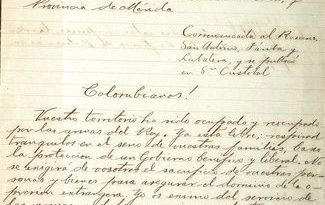 Provincia de Mérida
Comunicada al Rosario,
San Antonio, Táriba y
Lobatera, y se publicó
en Sn Cristobal
Colombianos!
Vuestro territorio ha sido ocupado y recuperado
por las armas del Rey. Ya está libre; respirad
tranquilos en el seno de vuestras familias, bajo
la protección de un Gobierno benéfico y liberal. No
se exigirá de vosotros el sacrificio de vuestras per-
sonas y bienes para asegurar el dominio de la o-
presion extrangera. Yo os eximo del servicio de